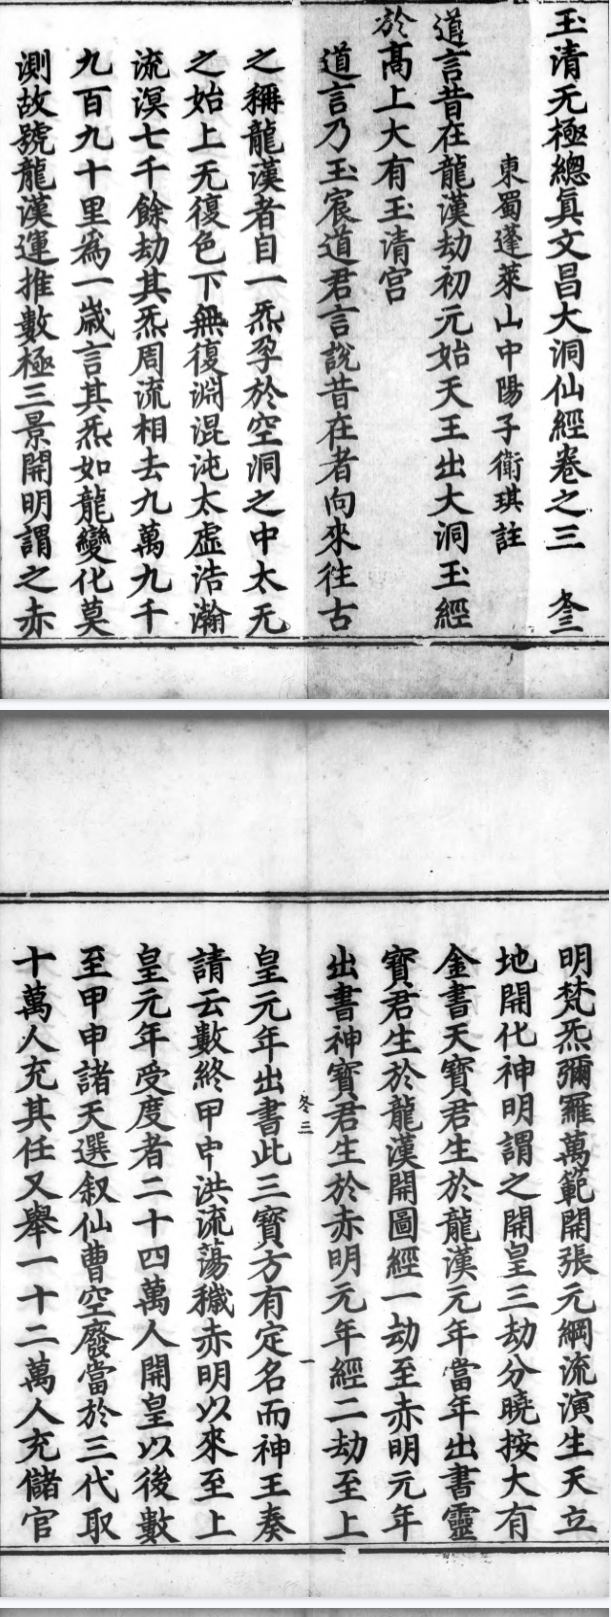 玉清无極總真文昌大洞仙經卷之三 冬三
東蜀蓬萊山中陽子衛琪註
道言昔在龍漢劫初元始天王出大洞玉經
於高上大有玉清宫
道言乃玉宸道君言說昔在者向來往古
之稱龍漢者自一炁孕於空洞之中太无
之始上无復色下無復淵混沌太虛浩瀚
流溟七千餘劫其炁周流相去九萬九千
九百九十里為一歲言其炁如龍變化莫
測故號龍漢運推數極三景開明謂之赤
明梵炁彌羅萬範開張元綱流演生天立
地開化神明謂之開皇三劫分曉按大有
金書天寶君生於龍漢元年當年出書靈
寶君生於龍漢開圖經一劫至赤明元年
出書神寶君生於赤明元年經二劫至上
冬三 一
皇元年出書此三寶方有定名而神王奏
請云數終甲申洪流蕩穢赤明以來至上
皇元年受度者二十四萬人開皇以後數
至甲申諸天選叙仙曹空廢當於三代取
十萬人充其任又舉一十二萬人充儲官